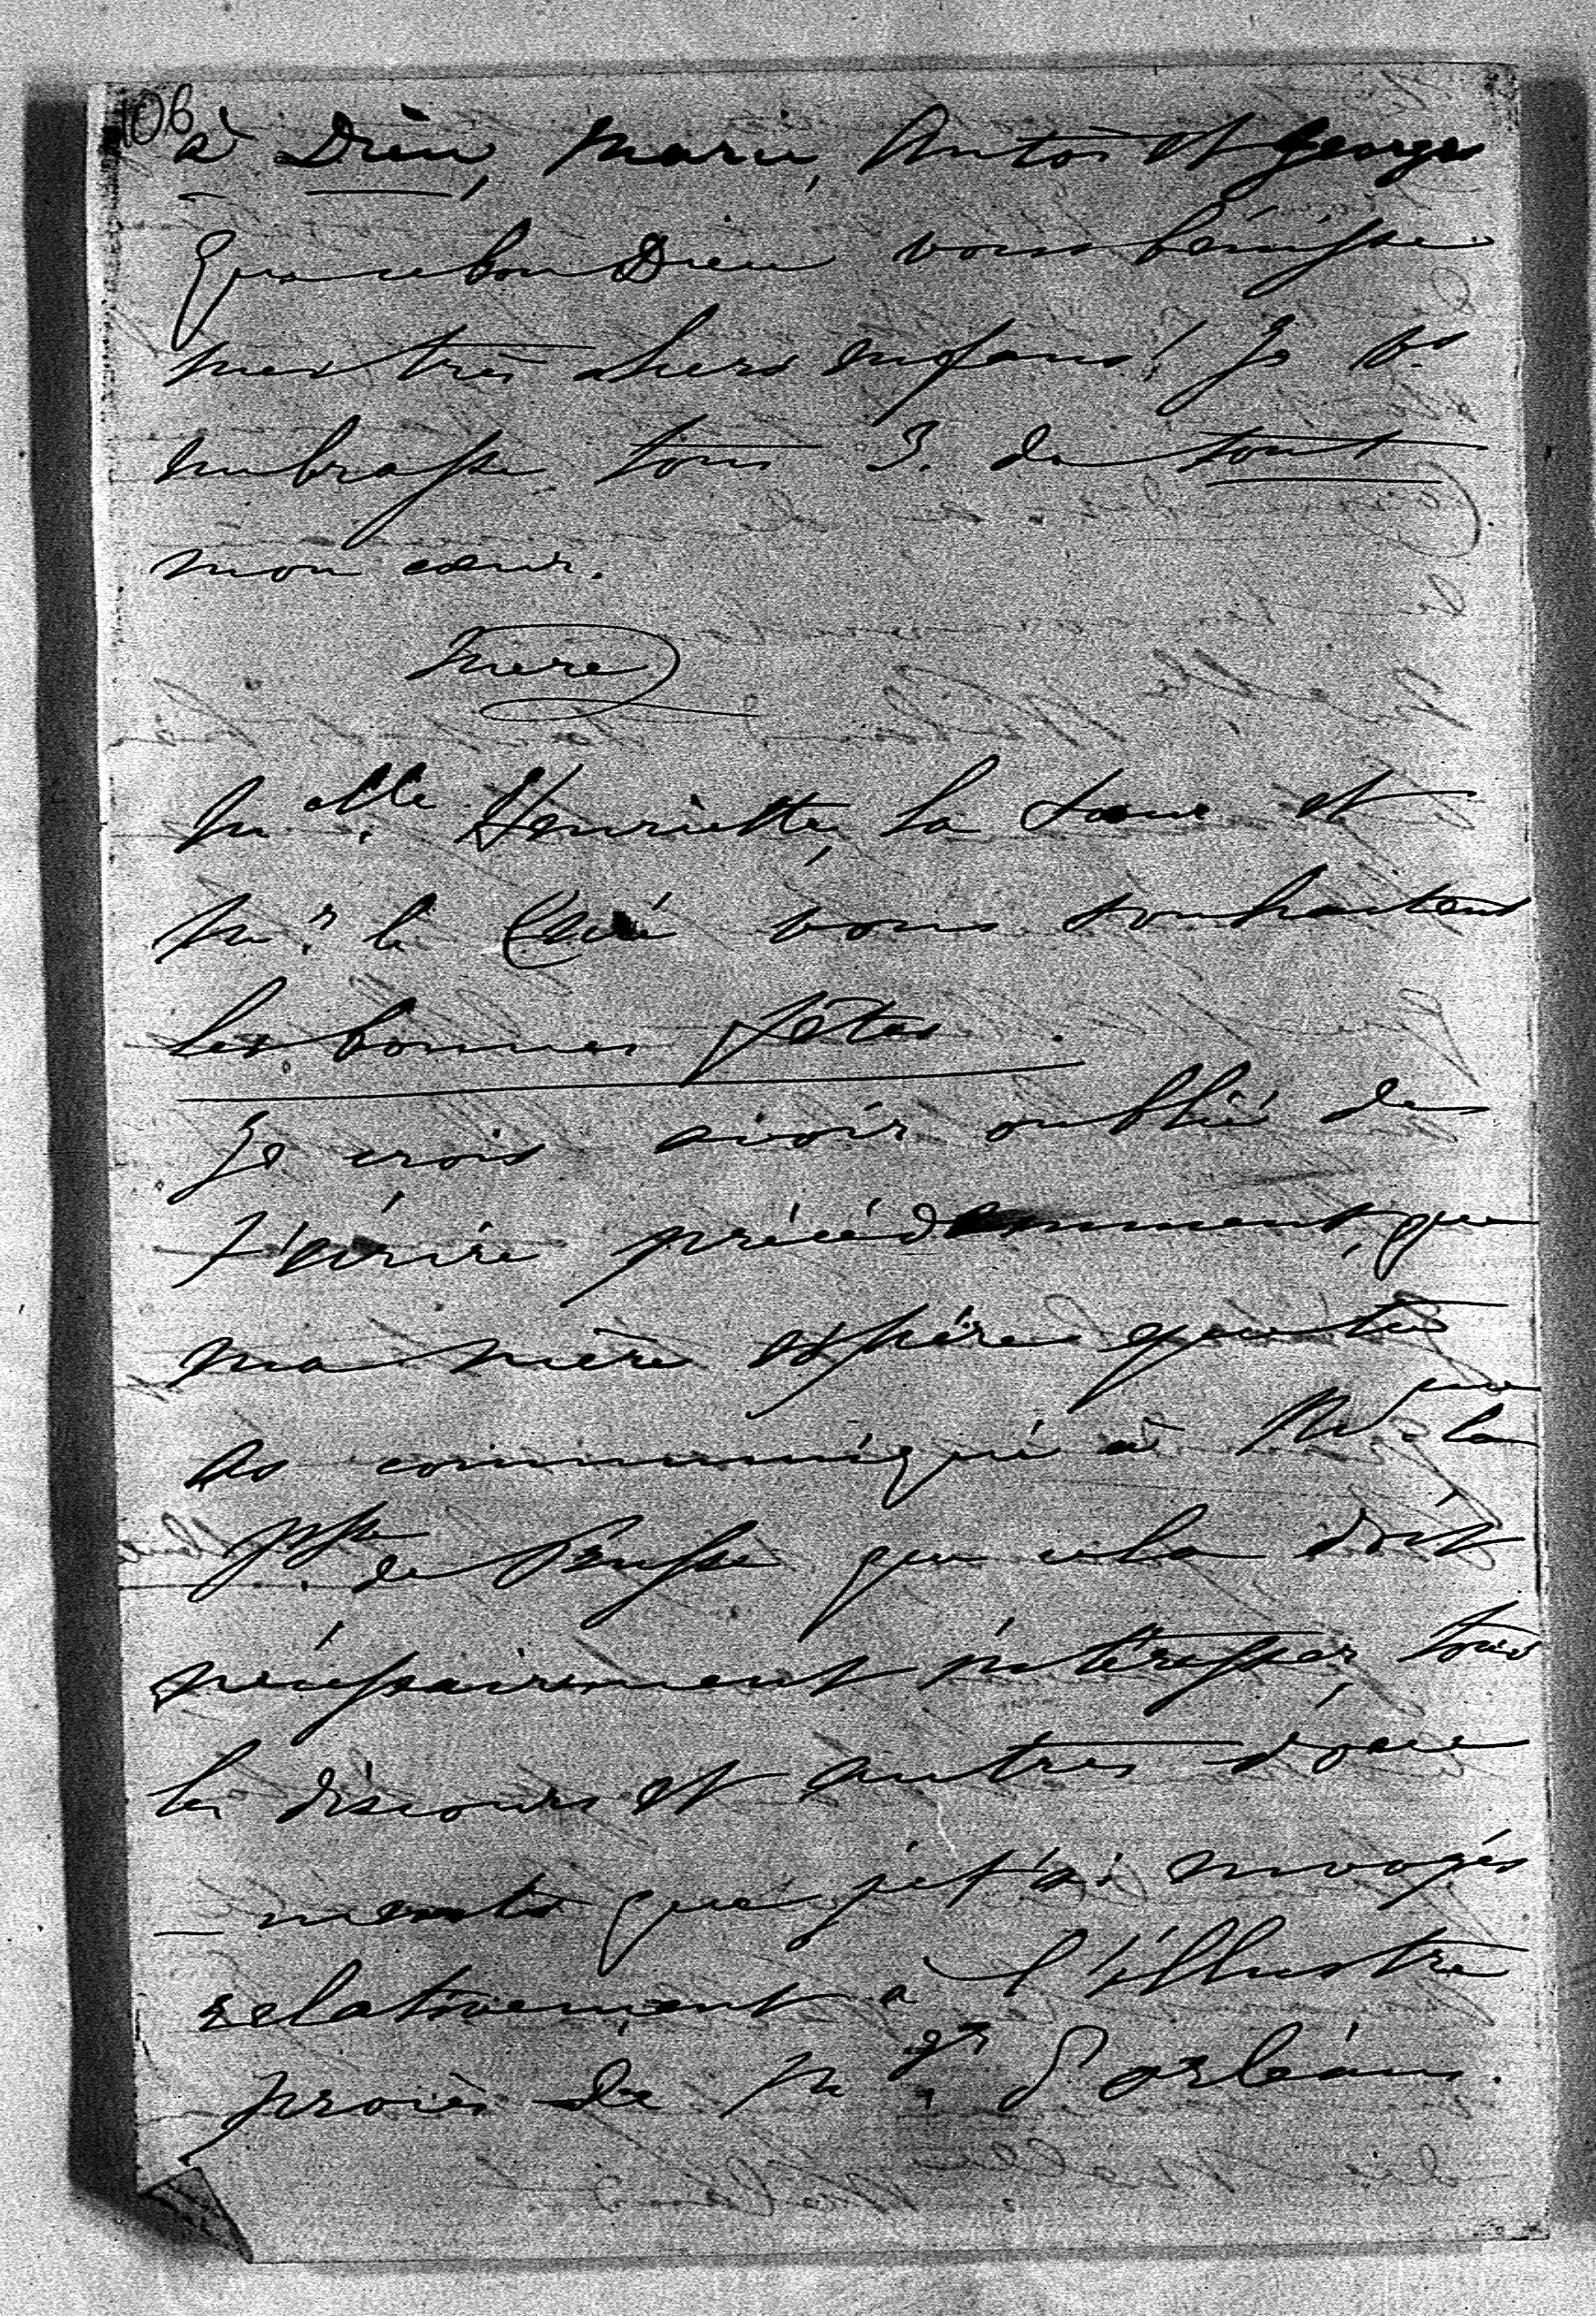 106
à Dieu, Marie, Antos et Georges
Que le bon Dieu vous bénisse
mes très chers enfans! Je vs
embrasse tous 3. de tout
mon cœur.
Mère
Melle Henriette, sa sœur et
Mr le Curé vous souhaitent
les bonnes fêtes.
Je crois avoir oublié de
t'écrire précédemment, que
ma mère espère que tu
as communiqué à Me la
Psse de Prusse que cela doit
nécessairement intéresser, tous
les discours et autres docu
_ments que je t'ai envoyés
relativement à l'illustre
procès de Mgr d'Orléans.